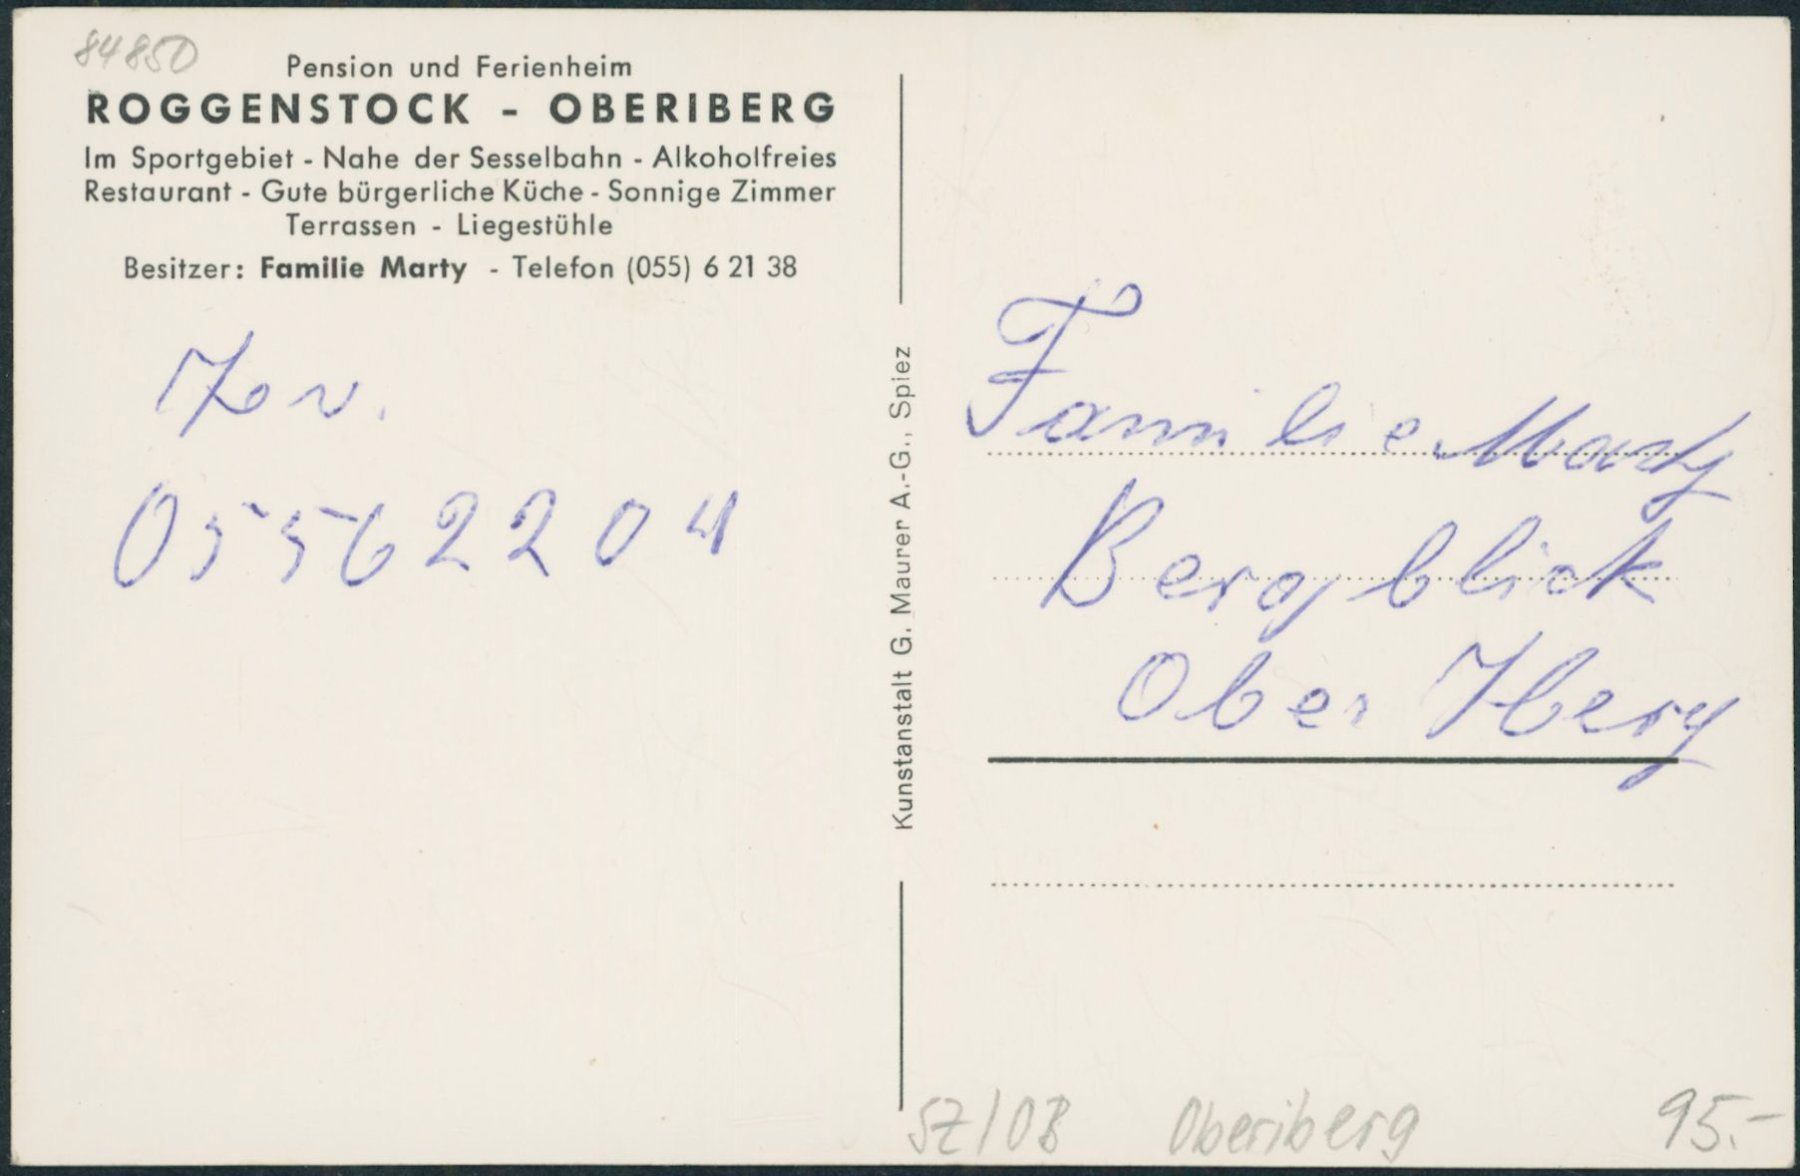 84850
Pension und Ferienheim
ROGGENSTOCK - OBERIBERG
Im Sportgebiet - Nahe der Sesselbahn - Alkoholfreies
Restaurant - Gute bürgerliche Küche - Sonnige Zimmer
Terrassen - Liegestühle
Besitzer: Familie Marty - Telefon (055) 6 21 38
05562204
Kunstanstalt G. Maurer A.-G., Spiez
Familie Marty
Bergblick
Ober Iberg
SZ/OB Oberiberg 95.-